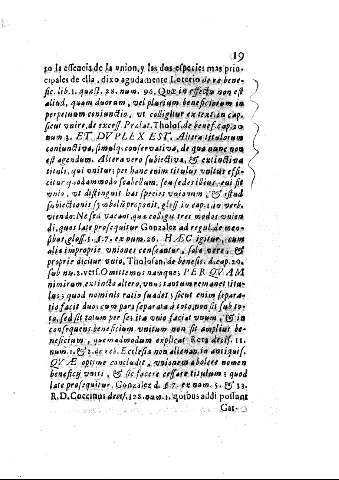 19
zo la essencia de la union, y las dos especies mas prin-
cipales de ella, dixo agudamente Loterio de re benefic.
lib. 1. quæst. 28. num. 96. Quæ in effectu non est
aliud, quam duorum, vel plurium beneficiorum in
perpetuum coniunctio, vt colligitur ex text. in cap.
sicut vnire, de excess. Prælat. Tholos. de benef. cap. 20.
num. 3. ET DVPLEX EST. Altera titulorum
coniunctiva, simulq; conservativa, de qua nunc non
est agendum. Altera vero subiectiva, & extinctiva
tituli, qui vnitur; per hanc enim titulus vnitus effi-
citur quodammodo scabellum, seu sedes ilius, cui sit
vnio, vt distinguit has species vnionum, & istud
subiectionis symbolũ proponit, gloss. in cap. 1. ne verb.
viendo: Ne sed vacat, quæ colligit tres modos vnien-
di, quos late prosequitur Gonzalez ad regul. de men-
sibus, gloss. 5. §. 7. ex num. 26. HÆC igitur, cum
alia improprie vniones censeantur, sola vere, &
proprie dicitur vnio, Tholosan. de benefic. d. cap. 20.
sub nu. 3. vers. Omittemus namque; PER QVAM
nimirum, extincto altero, vnus tantum remanet titu-
lus; quod nominis ratio suadet; sicut enim separa-
tio facit duo; cum pars separata à toto, non sit sub to-
to, sed sit totum per se; ita vnio faciat vnum, & in
consequens beneficium vnitum non sit amplius be-
neficium, quemadmodum explicat Rota decis. 11.
num. 1. & 2. de reb. Ecclesiæ non alienan. in antiquis.
QVÆ optime concludit, vnionem abolere nomen
beneficij vniti, & sic facere cessare titulum; quod
late prosequitur. Gonzalez d. §. 7. ex num. 5. & 33.
R. D. Coccinus decis. 128. num. 1. quibus addi possunt
Gar-